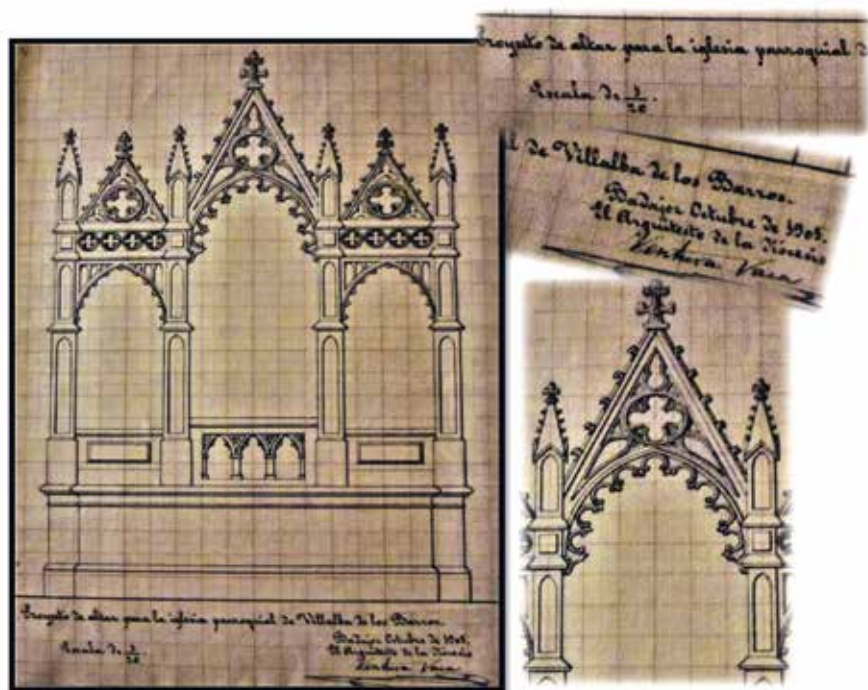 Proyecto de altar para la iglesia parroquial de Villalba de los Barros.
Badajoz Octubre de 1905.
Escala de 1/20
El Arquitecto de la Diócesis
Ventura Vaca
Proyecto de altar para la iglesia parroquial d
Escala de 1/20.
l de Villalba de los Barros.
Badajoz Octubre de 1905.
El Arquitecto de la Diócesis
Ventura Vaca